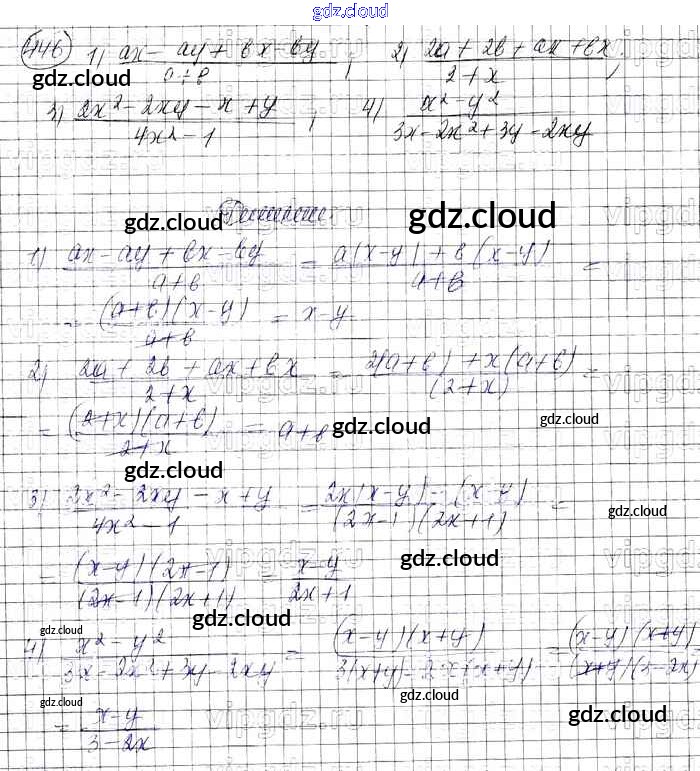 gdz.cloud
446 1) (ax - ay + bx - by)/(a + b); 2) (2a + 2b + ax + bx)/(2 + x);
gdz.cloud
3) (2x² - 2xy - x + y)/(4x² - 1); 4) (x² - y²)/(3x - 2x² + 3y - 2xy)
Решение.
gdz.cloud gdz.cloud vipgdz.ru
1) (ax - ay + bx - by)/(a + b) = (a(x - y) + b(x - y))/(a + b) =
= ((a + b)(x - y))/(a + b) = x - y
2) (2a + 2b + ax + bx)/(2 + x) = (2(a + b) + x(a + b))/(2 + x) =
= ((2 + x)(a + b))/(2 + x) = a + b gdz.cloud gdz.cloud
gdz.cloud
3) (2x² - 2xy - x + y)/(4x² - 1) = (2x(x - y) - (x - y))/((2x - 1)(2x + 1)) = gdz.cloud
vipgdz.ru gdz.cloud
= ((x - y)(2x - 1))/((2x - 1)(2x + 1)) = (x - y)/(2x + 1)
gdz.cloud gdz.cloud
4) (x² - y²)/(3x - 2x² + 3y - 2xy) = ((x - y)(x + y))/(3(x + y) - 2x(x + y)) = ((x - y)(x + y))/((x + y)(3 - 2x))
gdz.cloud
= (x - y)/(3 - 2x) gdz.cloud